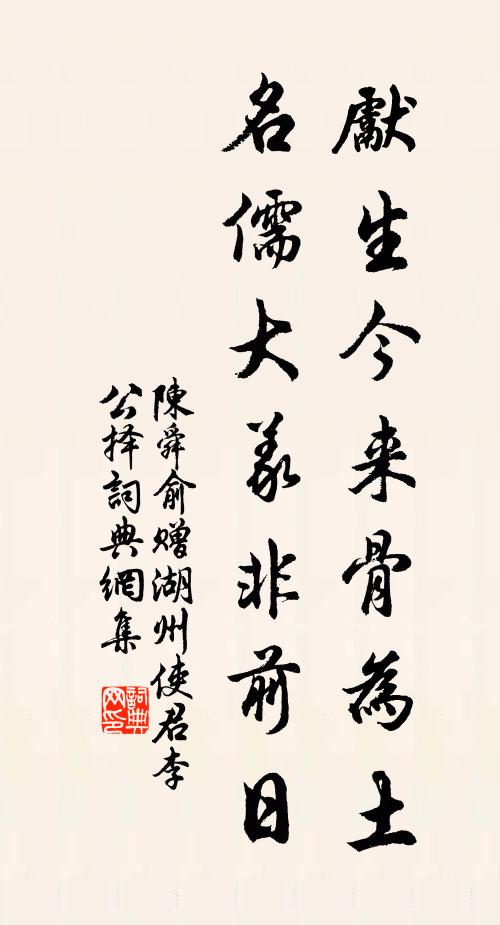 獻生今来骨為土
名儒大義非前日
陳舜俞赠湖州使君李
公择詞典網集
詞典网印